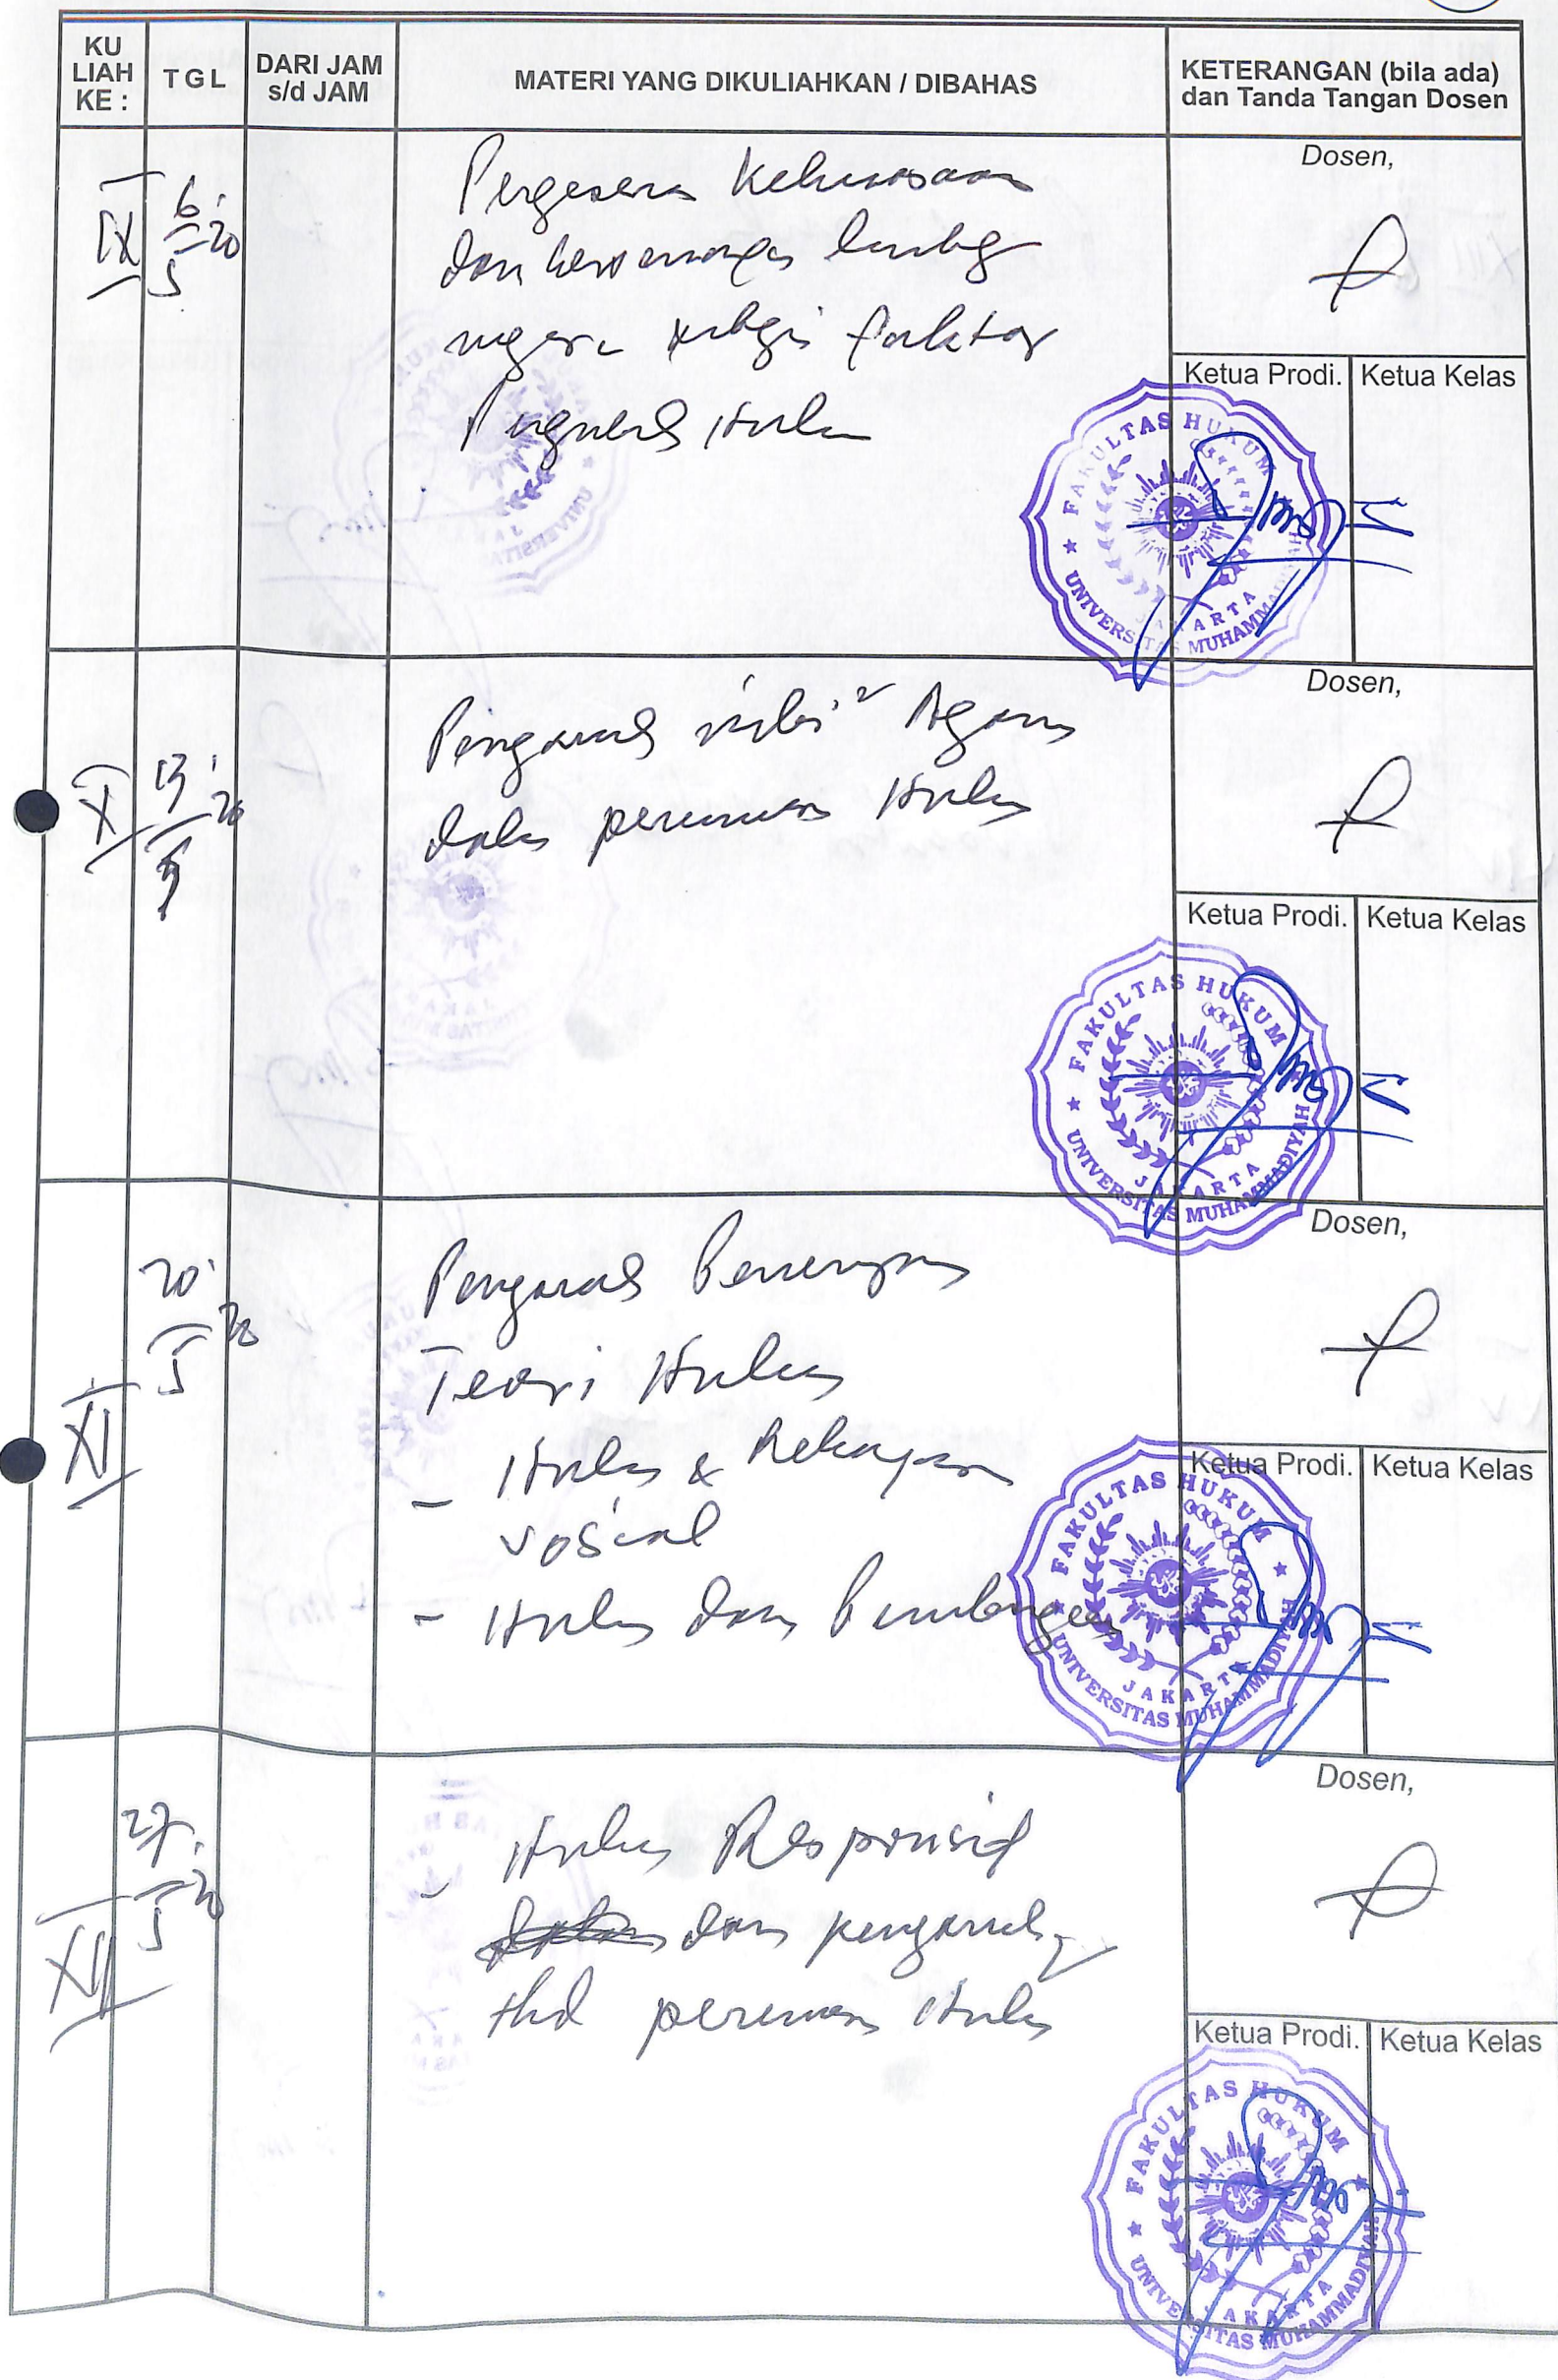 KU LIAH KE :
TGL
DARI JAM s/d JAM
MATERI YANG DIKULIAHKAN / DIBAHAS
KETERANGAN (bila ada) dan Tanda Tangan Dosen
IX
6/5 '20
Pergeseran Kekuasaan
dan kewenangan
negara sebagai faktor
Pengaruh Hukum
Dosen,
Ketua Prodi.
Ketua Kelas
FAKULTAS HUKUM
UNIVERSITAS MUHAMMADIYAH
JAKARTA
X
13/5 '20
Pengaruh nilai² Agama
dalam Hukum
Dosen,
Ketua Prodi.
Ketua Kelas
FAKULTAS HUKUM
UNIVERSITAS MUHAMMADIYAH
JAKARTA
XI
20/5 '20
Pengaruh
Teori Hukum
- Hukum & Rekayasa
sosial
- Hukum dan
Dosen,
Ketua Prodi.
Ketua Kelas
FAKULTAS HUKUM
UNIVERSITAS MUHAMMADIYAH
JAKARTA
XII
27/5 '20
- Hukum Responsif
dan pengaruhnya
thd Hukum
Dosen,
Ketua Prodi.
Ketua Kelas
FAKULTAS HUKUM
UNIVERSITAS MUHAMMADIYAH
JAKARTA